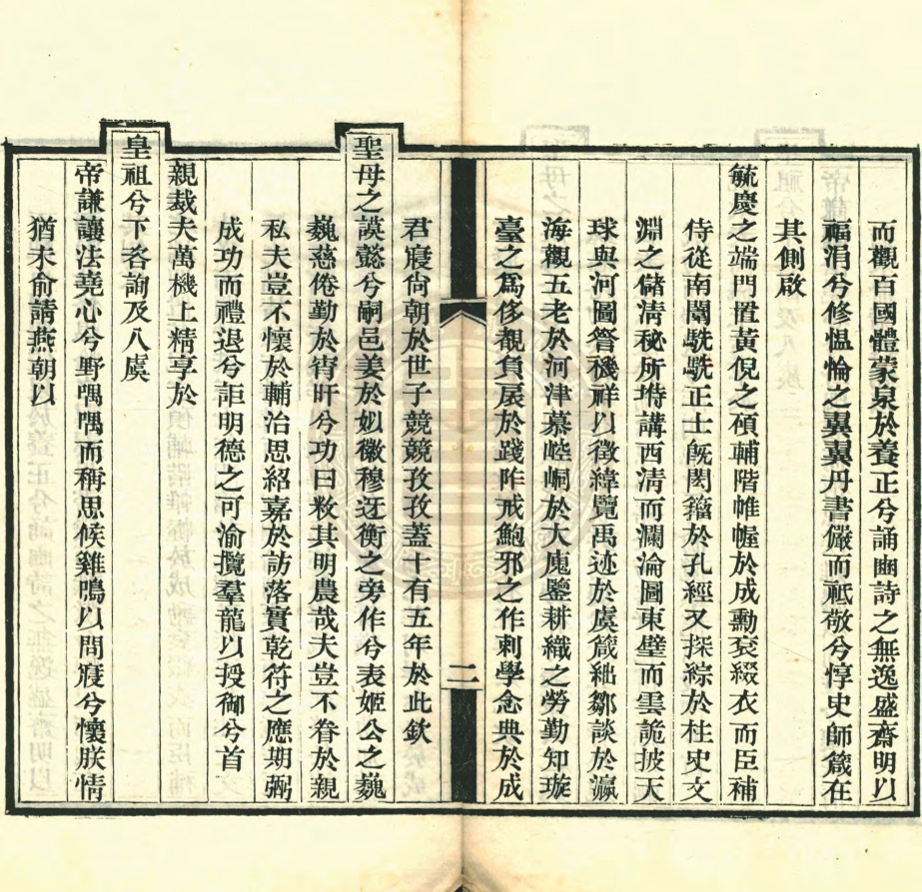 而觀百國體蒙泉於養正兮誦豳詩之無逸盛齋明以
福涓兮修愠惀之翼翼丹書儼而祗敬兮惇史師箴在
其側啟
毓慶之端門置黃倪之碩輔階帷幄於成勳袞綴衣而臣補
侍從南闈駪駪正士既閎籀於孔經又探綜於柱史文
淵之儲淸秘所塒講西淸而瀾淪圖東壁而雲詭披天
球與河圖簪禨祥以徵緯覽禹迹於虞箴紬鄒談於瀛
海觀五老於河津慕崆峒於大隗鑒耕織之勞勤知璇
臺之爲侈覩負扆於踐阼戒鮑邪之作刺學念典於成
二
君寢尙朝於世子競競孜孜蓋十有五年於此欽
聖母之謨懿兮嗣邑姜於姒徽穆迓衡之旁作兮表姬公之巍
巍慈倦勤於宵旰兮功曰敉其明農哉夫豈不眷於親
私夫豈不懷於輔治思紹嘉於訪落實乾符之應期弼
成功而禮退兮詎明德之可渝攬羣龍以授御兮首
親裁夫萬機上精享於
皇祖兮下咨詢及八虞
帝謙讓法堯心兮野喁喁而稱思候雞鳴以問寢兮懷朕情
猶未俞請燕朝以